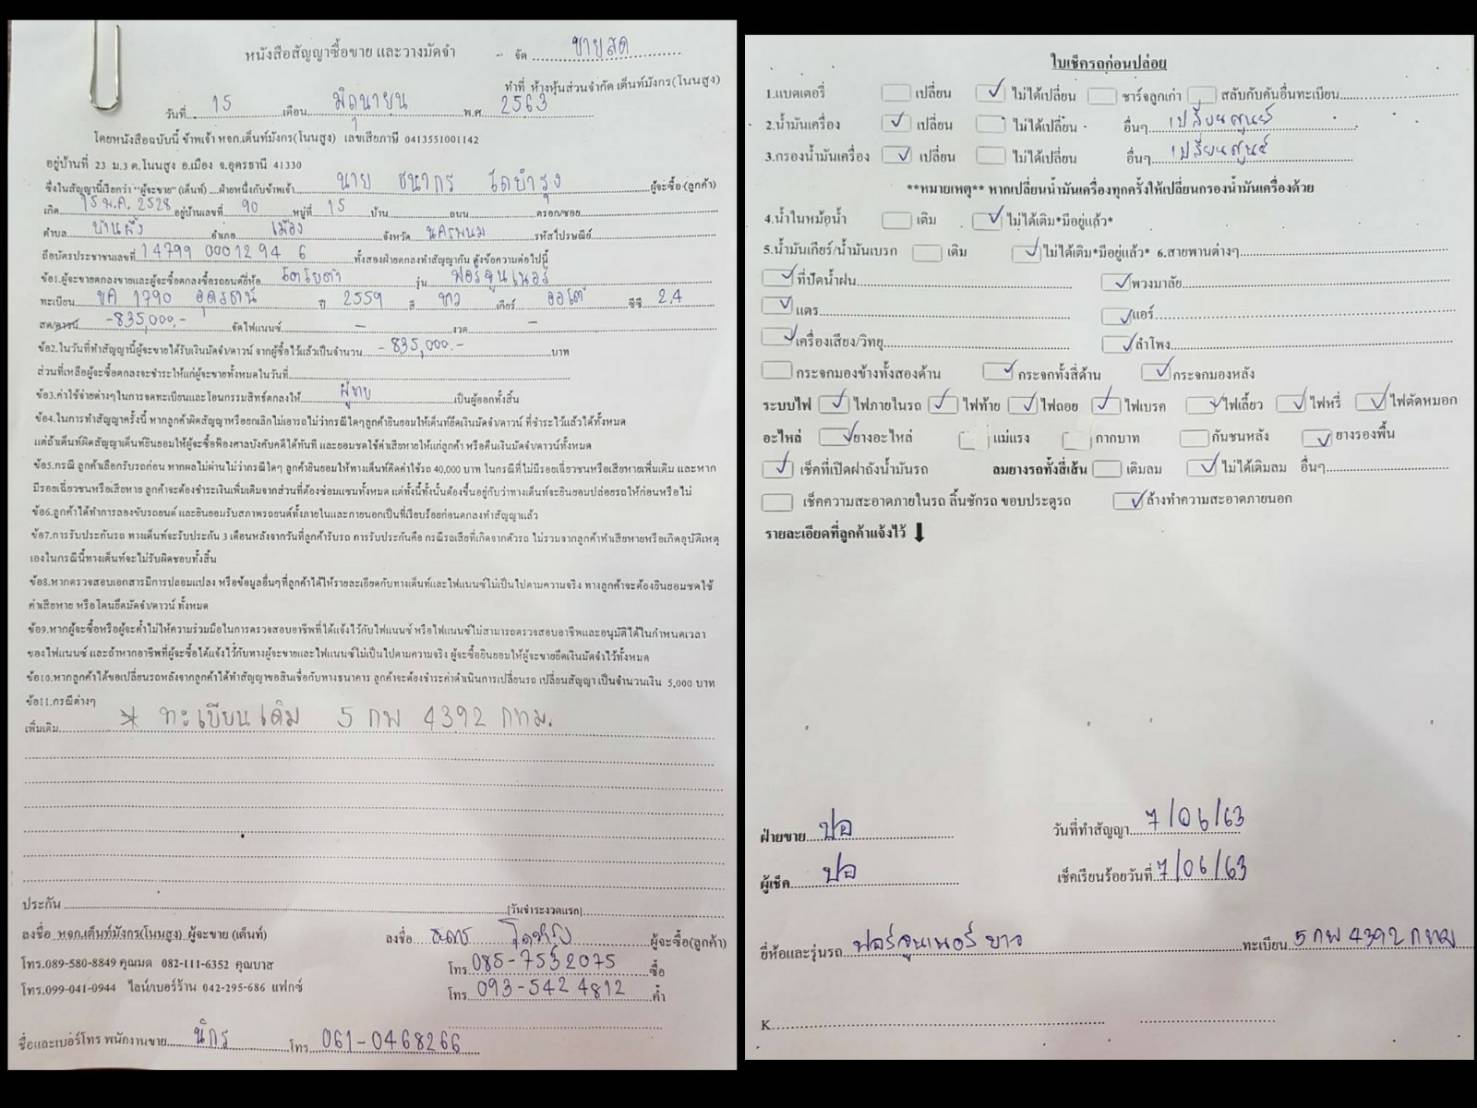 หนังสือสัญญาซื้อขาย และวางมัดจำ - จัด ขายสด
ทำที่ ห้างหุ้นส่วนจำกัด เต็นท์มังกร(โนนสูง)
วันที่ 15 เดือน มิถุนายน พ.ศ 2563
โดยหนังสือฉบับนี้ ข้าพเจ้า หจก.เต็นท์มังกร(โนนสูง) เลขเสียภาษี 0413551001142
อยู่บ้านที่ 23 ม.3 ต.โนนสูง อ.เมือง จ.อุดรธานี 41330
ซึ่งในสัญญานี้เรียกว่า "ผู้จะขาย" (เต็นท์) ฝ่ายหนึ่งกับข้าพเจ้า นาย ธนากร โตบำรุง ผู้จะซื้อ (ลูกค้า)
เกิด 15 ม.ค. 2528 อยู่บ้านเลขที่ 90 หมู่ที่ 15 บ้าน ถนน ตรอก/ซอย
ตำบล บ้านผึ้ง อำเภอ เมือง จังหวัด นครพนม รหัสไปรษณีย์
ถือบัตรประชาชนเลขที่ 14799 00012 94 6 ทั้งสองฝ่ายตกลงทำสัญญากัน ดังข้อความต่อไปนี้
ข้อ1.ผู้จะขายตกลงขายและผู้จะซื้อตกลงซื้อรถยนต์ยี่ห้อ โตโยต้า รุ่น ฟอร์จูนเนอร์
ทะเบียน ขค 1790 อุดรธานี ปี 2559 สี ขาว เกียร์ ออโต้ ซีซี 2.4
สด/ดาวน์ -835,000.- จัดไฟแนนซ์ - งวด -
ข้อ2.ในวันที่ทำสัญญานี้ผู้จะขายได้รับเงินมัดจำ/ดาวน์ จากผู้ซื้อไว้แล้วเป็นจำนวน - 835,000.- บาท
ส่วนที่เหลือผู้จะซื้อตกลงจะชำระให้แก่ผู้จะขายทั้งหมดในวันที่
ข้อ3.ค่าใช้จ่ายต่างๆในการจดทะเบียนและโอนกรรมสิทธิ์ตกลงให้ ผู้ขาย เป็นผู้ออกทั้งสิ้น
ข้อ4.ในการทำสัญญาครั้งนี้ หากลูกค้าผิดสัญญาหรือยกเลิกไม่เอารถไม่ว่ากรณีใดๆลูกค้ายินยอมให้เต็นท์ยึดเงินมัดจำ/ดาวน์ ที่ชำระไว้แล้วได้ทั้งหมด
แต่ถ้าเต็นท์ผิดสัญญาเต็นท์ยินยอมให้ผู้จะซื้อฟ้องศาลบังคับคดีได้ทันที และยอมชดใช้ค่าเสียหายให้แก่ลูกค้า หรือคืนเงินมัดจำ/ดาวน์ทั้งหมด
ข้อ5.กรณี ลูกค้าเลือกรับรถก่อน หากผลไม่ผ่านไม่ว่ากรณีใดๆ ลูกค้ายินยอมให้ทางเต็นท์คิดค่าใช้รถ 40,000 บาท ในกรณีที่ไม่มีรอยเฉี่ยวชนหรือเสียหายเพิ่มเติม และหาก
มีรอยเฉี่ยวชนหรือเสียหาย ลูกค้าจะต้องชำระเงินเพิ่มเติมจากส่วนที่ต้องซ่อมแซมทั้งหมด แต่ทั้งนี้ทั้งนั้นต้องขึ้นอยู่กับว่าทางเต็นท์จะยินยอมปล่อยรถให้ก่อนหรือไม่
ข้อ6.ลูกค้าได้ทำการลองขับรถยนต์ และยินยอมรับสภาพรถยนต์ทั้งภายในและภายนอกเป็นที่เรียบร้อยก่อนตกลงทำสัญญาแล้ว
ข้อ7.การรับประกันรถ ทางเต็นท์จะรับประกัน 3 เดือนหลังจากวันที่ลูกค้ารับรถ การรับประกันคือ กรณีรถเสียที่เกิดจากตัวรถ ไม่รวมจากลูกค้าทำเสียหายหรือเกิดอุบัติเหตุ
เองในกรณีนี้ทางเต็นท์จะไม่รับผิดชอบทั้งสิ้น
ข้อ8.หากตรวจสอบเอกสารมีการปลอมแปลง หรือข้อมูลอื่นๆที่ลูกค้าได้ให้รายละเอียดกับทางเต็นท์และไฟแนนซ์ไม่เป็นไปตามความจริง ทางลูกค้าจะต้องยินยอมชดใช้
ค่าเสียหาย หรือโดนยึดมัดจำ/ดาวน์ ทั้งหมด
ข้อ9.หากผู้จะซื้อหรือผู้จะค้ำไม่ให้ความร่วมมือในการตรวจสอบอาชีพที่ได้แจ้งไว้กับไฟแนนซ์ หรือไฟแนนซ์ไม่สามารถตรวจสอบอาชีพและอนุมัติได้ในกำหนดเวลา
ของไฟแนนซ์ และถ้าหากอาชีพที่ผู้จะซื้อได้แจ้งไว้กับทางผู้จะขายและไฟแนนซ์ไม่เป็นไปตามความจริง ผู้จะซื้อยินยอมให้ผู้จะขายยึดเงินมัดจำไว้ทั้งหมด
ข้อ10.หากลูกค้าได้ขอเปลี่ยนรถหลังจากลูกค้าได้ทำสัญญาขอสินเชื่อกับทางธนาคาร ลูกค้าจะต้องชำระค่าดำเนินการเปลี่ยนรถ เปลี่ยนสัญญา เป็นจำนวนเงิน 5,000 บาท
ข้อ11.กรณีต่างๆ
เพิ่มเติม * ทะเบียนเดิม 5 กพ 4392 กทม.
ประกัน (วันชำระงวดแรก)
ลงชื่อ หจก.เต็นท์มังกร(โนนสูง) ผู้จะขาย (เต็นท์) ลงชื่อ ธนากร โตบำรุง ผู้จะซื้อ(ลูกค้า)
โทร.089-580-8849 คุณมด 082-111-6352 คุณบาส โทร 085-7532075 ซื้อ
โทร.099-041-0944 ไลน์/เบอร์ร้าน 042-295-686 แฟกซ์ โทร 093-542 4812 ค้ำ
ชื่อและเบอร์โทร พนักงานขาย นักร โทร 061-0468266
ใบเช็ครถก่อนปล่อย
1.แบตเตอรี่ เปลี่ยน ✓ ไม่ได้เปลี่ยน ชาร์จลูกเก่า สลับกับคันอื่นทะเบียน
2.น้ำมันเครื่อง ✓ เปลี่ยน ไม่ได้เปลี่ยน อื่นๆ เปลี่ยนศูนย์
3.กรองน้ำมันเครื่อง ✓ เปลี่ยน ไม่ได้เปลี่ยน อื่นๆ เปลี่ยนศูนย์
**หมายเหตุ** หากเปลี่ยนน้ำมันเครื่องทุกครั้งให้เปลี่ยนกรองน้ำมันเครื่องด้วย
4.น้ำในหม้อน้ำ เติม ✓ ไม่ได้เติม*มีอยู่แล้ว*
5.น้ำมันเกียร์/น้ำมันเบรก เติม ✓ ไม่ได้เติม*มีอยู่แล้ว* 6.สายพานต่างๆ
✓ ที่ปัดน้ำฝน ✓ พวงมาลัย
✓ แตร ✓ แอร์
✓ เครื่องเสียง/วิทยุ ✓ ลำโพง
กระจกมองข้างทั้งสองด้าน ✓ กระจกทั้งสี่ด้าน ✓ กระจกมองหลัง
ระบบไฟ ✓ ไฟภายในรถ ✓ ไฟท้าย ✓ ไฟถอย ✓ ไฟเบรค ✓ ไฟเลี้ยว ✓ ไฟหรี่ ✓ ไฟตัดหมอก
อะไหล่ ✓ ยางอะไหล่ แม่แรง กากบาท กันชนหลัง ✓ ยางรองพื้น
✓ เช็คที่เปิดฝาถังน้ำมันรถ ลมยางรถทั้งสี่เส้น เติมลม ✓ ไม่ได้เติมลม อื่นๆ
เช็คความสะอาดภายในรถ ลิ้นชักรถ ขอบประตูรถ ✓ ล้างทำความสะอาดภายนอก
รายละเอียดที่ลูกค้าแจ้งไว้ ⬇
ฝ่ายขาย ปอ วันที่ทำสัญญา 7/06/63
ผู้เช็ค ปอ เช็คเรียบร้อยวันที่ 7/06/63
ยี่ห้อและรุ่นรถ ฟอร์จูนเนอร์ ขาว ทะเบียน 5 กพ 4392 กทม
K